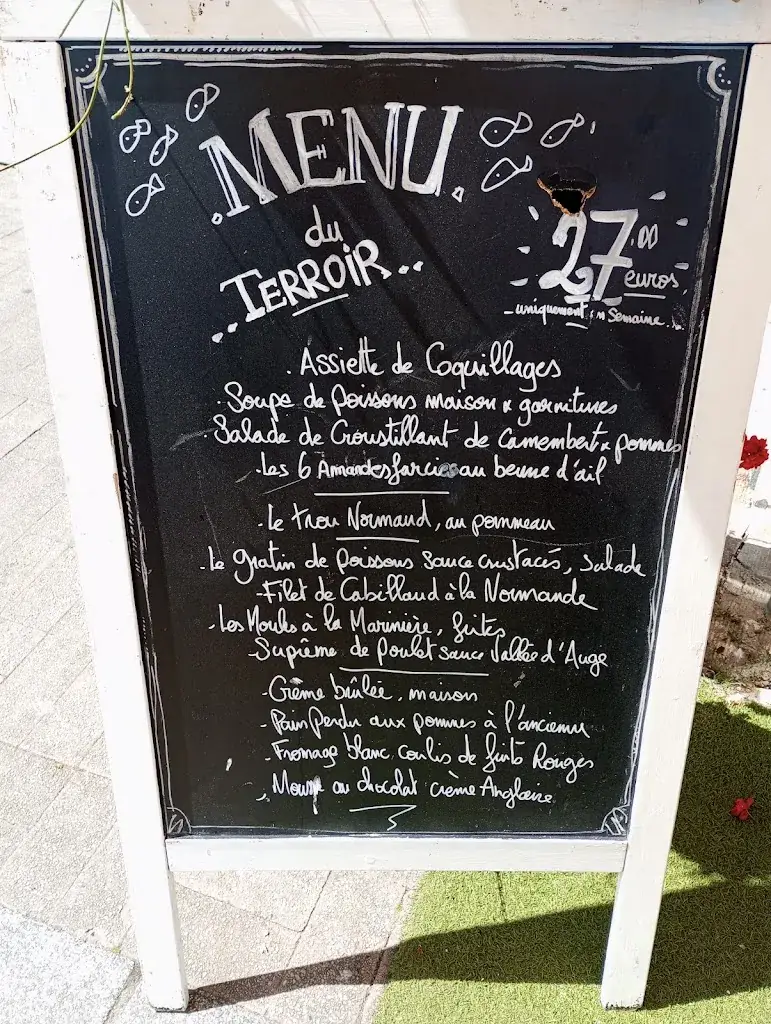 MENU
du
TERROIR..
27.00
euros
uniquement en Semaine..
. Assiette de Coquillages
. Soupe de poissons maison & garnitures
. Salade de Croustillant de Camembert & pommes
. Les 6 Amandes farcies au beurre d'ail
. Le trou Normand, au pommeau
. Le gratin de poissons sauce crustacés, Salade
- Filet de Cabillaud à la Normande
. Les Moules à la Marinière, frites
- Suprême de poulet sauce Vallée d'Auge
- Crème brûlée, maison
- Pain perdu aux pommes à l'ancienne
- Fromage blanc coulis de fruits Rouges
. Mousse au chocolat crème Anglaise